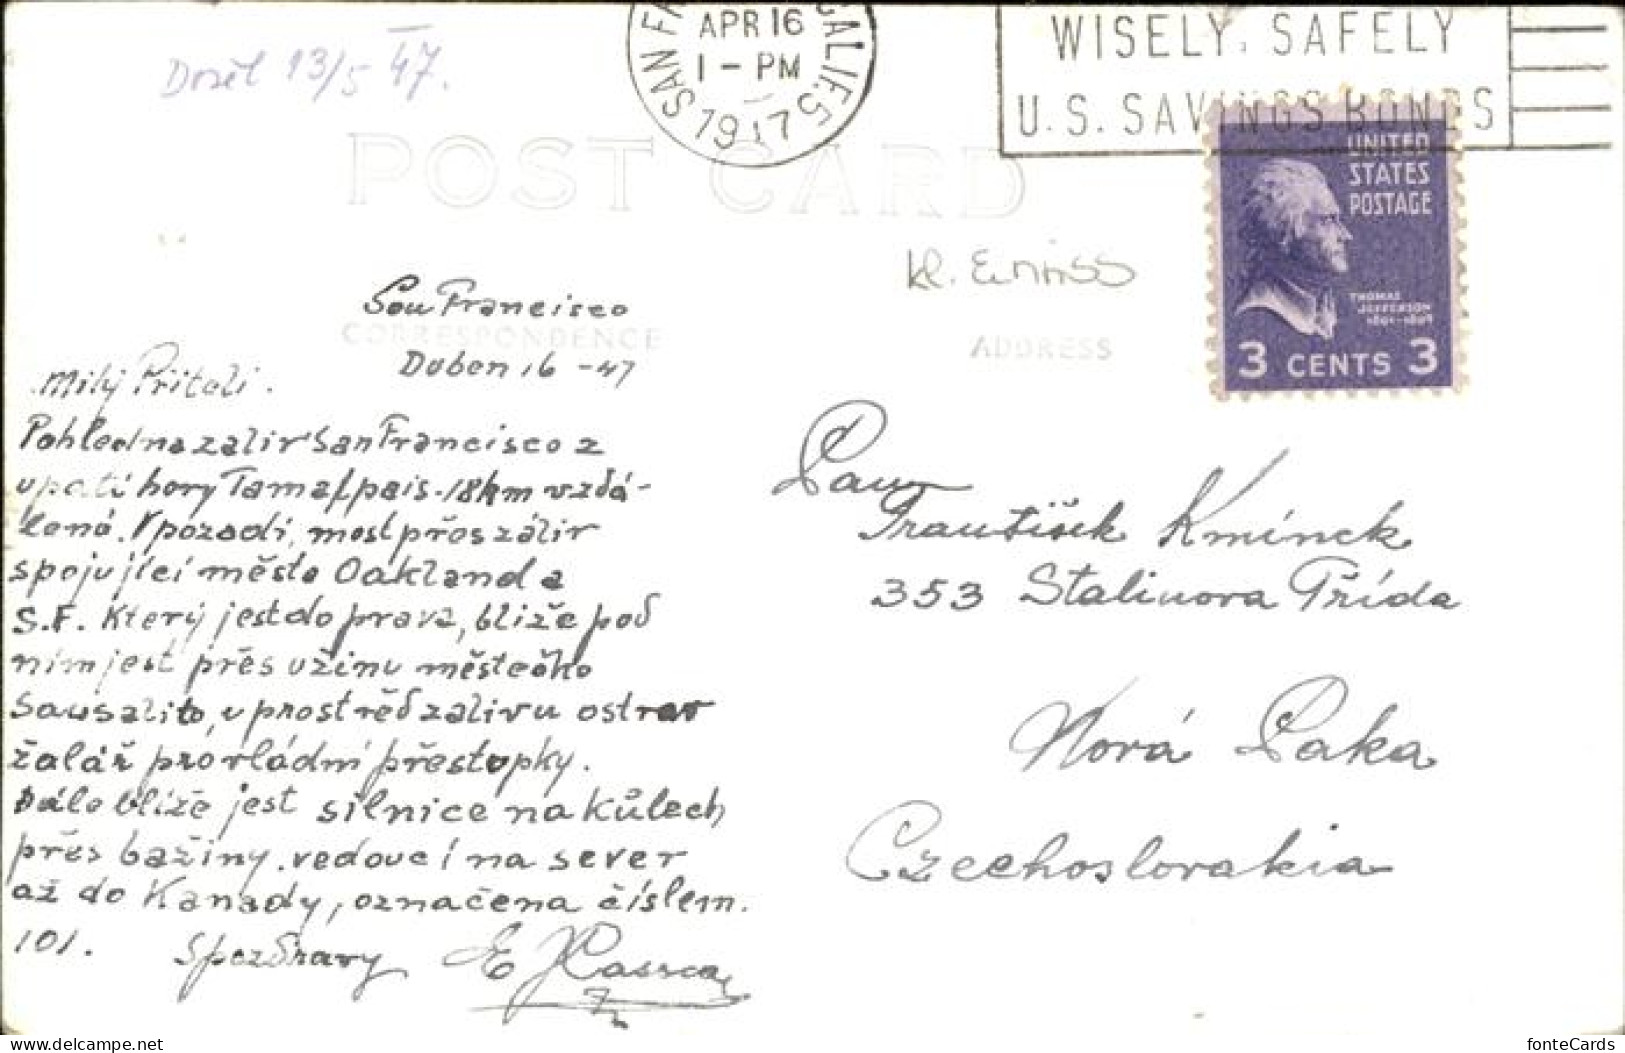 Došel 13/5 47.
SAN FRANCISCO, CALIF. 5
APR 16
1 - PM
1947
WISELY, SAFELY
U.S. SAVINGS BONDS
UNITED
STATES
POSTAGE
THOMAS
JEFFERSON
1801-1809
3 CENTS 3
POST CARD
CORRESPONDENCE
ADDRESS
San Francisco
Duben 16 - 47
Milý Příteli.
Pohled na zaliv San Francisco z
upatí hory Tamalpais. 18 km vzdá-
lená. V pozadi, most přes záliv
spojující město Oakland a
S.F. Který jest do prava, bliže pod
ním jest přes užinu městečko
Sausalito, uprostřěd zalivu ostrov
žalář pro vládní přestupky.
Dále blíže jest silnice na kůlech
přes bažiny. vedoucí na sever
až do Kanady, označena číslem.
101. S pozdravy E
Panu
František Kmínek
353 Stalinova Třída
Nová Paka
Czechoslovakia
fonteCards
delcampe.net